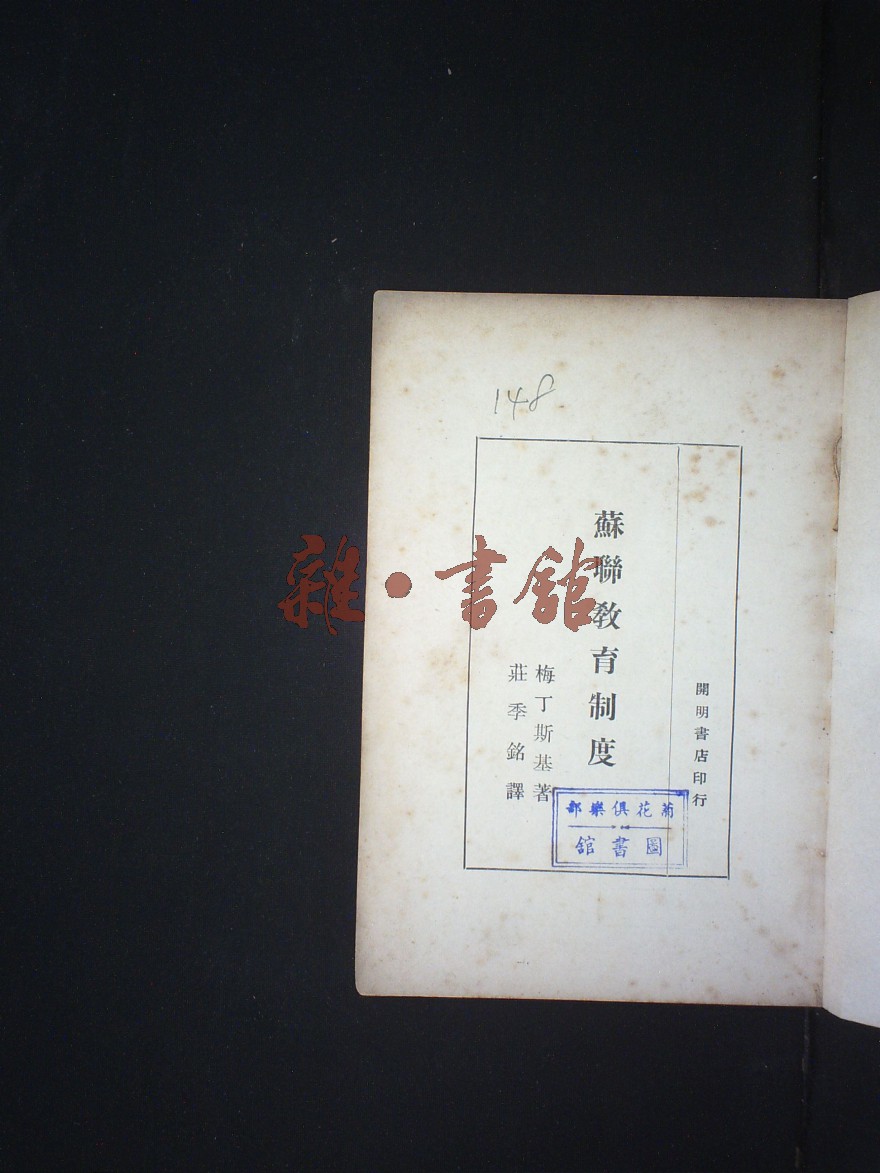 148
開明書店印行
蘇聯教育制度
梅丁斯基著
莊季銘譯
菊花俱樂部
圖書館
雜·書館